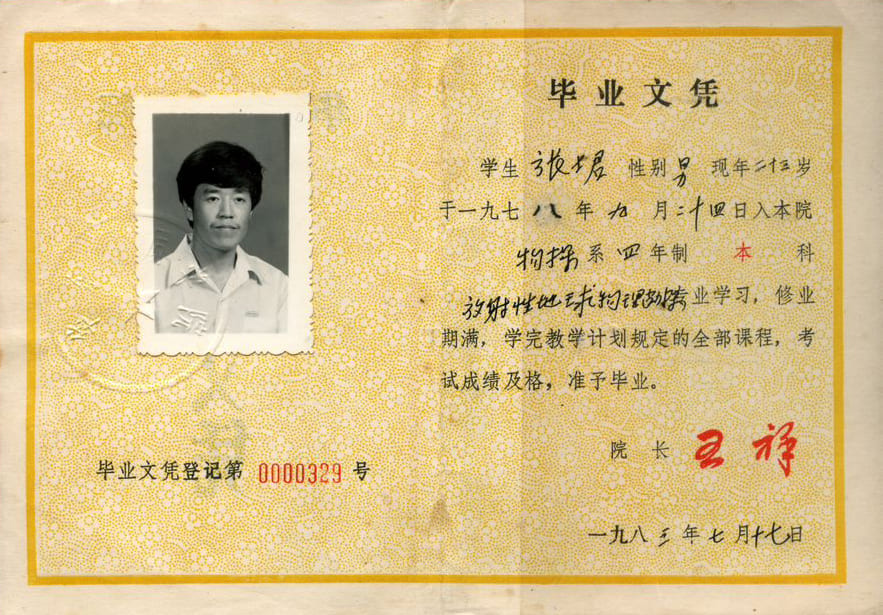 毕业文凭登记第 0000329 号
毕业文凭
学生 张 君 性别 男 现年二十三岁
于一九七八年九月二十四日入本院
物探系四年制 本 科
放射性地球物理勘探专业学习，修业
期满，学完教学计划规定的全部课程，考
试成绩及格，准予毕业。
院长 王祥
一九八三年七月十七日